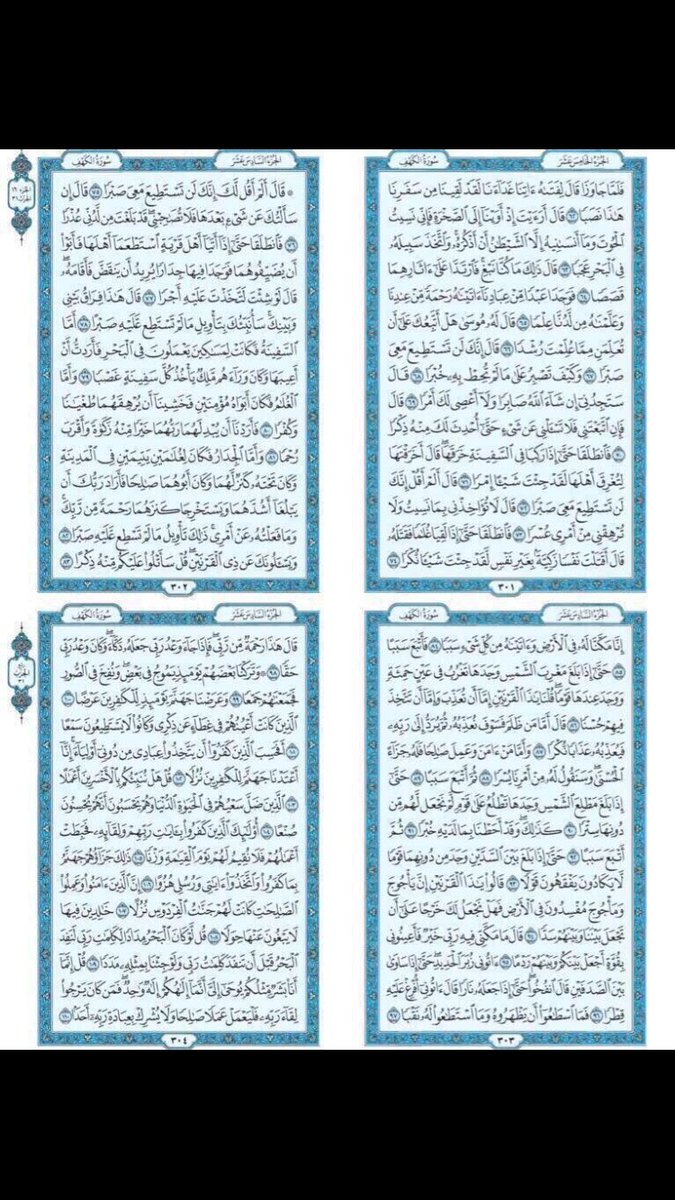 الجُزْءُ الخَامِسَ عَشَرَ
سُورَةُ الكَهْفِ
فَلَمَّا جَاوَزَا قَالَ لِفَتَىٰهُ ءَاتِنَا غَدَآءَنَا لَقَدْ لَقِينَا مِن سَفَرِنَا
هَٰذَا نَصَبًا ٦٢ قَالَ أَرَءَيْتَ إِذْ أَوَيْنَآ إِلَى ٱلصَّخْرَةِ فَإِنِّي نَسِيتُ
ٱلْحُوتَ وَمَآ أَنسَىٰنِيهُ إِلَّا ٱلشَّيْطَٰنُ أَنْ أَذْكُرَهُۥۚ وَٱتَّخَذَ سَبِيلَهُۥ
فِي ٱلْبَحْرِ عَجَبًا ٦٣ قَالَ ذَٰلِكَ مَا كُنَّا نَبْغِۚ فَٱرْتَدَّا عَلَىٰٓ ءَاثَارِهِمَا
قَصَصًا ٦٤ فَوَجَدَا عَبْدًا مِّنْ عِبَادِنَآ ءَاتَيْنَٰهُ رَحْمَةً مِّنْ عِندِنَا
وَعَلَّمْنَٰهُ مِن لَّدُنَّا عِلْمًا ٦٥ قَالَ لَهُۥ مُوسَىٰ هَلْ أَتَّبِعُكَ عَلَىٰٓ أَن
تُعَلِّمَنِ مِمَّا عُلِّمْتَ رُشْدًا ٦٦ قَالَ إِنَّكَ لَن تَسْتَطِيعَ مَعِيَ
صَبْرًا ٦٧ وَكَيْفَ تَصْبِرُ عَلَىٰ مَا لَمْ تُحِطْ بِهِۦ خُبْرًا ٦٨ قَالَ
سَتَجِدُنِيٓ إِن شَآءَ ٱللَّهُ صَابِرًا وَلَآ أَعْصِي لَكَ أَمْرًا ٦٩ قَالَ
فَإِنِ ٱتَّبَعْتَنِي فَلَا تَسْـَٔلْنِي عَن شَيْءٍ حَتَّىٰٓ أُحْدِثَ لَكَ مِنْهُ ذِكْرًا
٧٠ فَٱنطَلَقَا حَتَّىٰٓ إِذَا رَكِبَا فِي ٱلسَّفِينَةِ خَرَقَهَاۖ قَالَ أَخَرَقْتَهَا
لِتُغْرِقَ أَهْلَهَا لَقَدْ جِئْتَ شَيْـًٔا إِمْرًا ٧١ قَالَ أَلَمْ أَقُلْ إِنَّكَ
لَن تَسْتَطِيعَ مَعِيَ صَبْرًا ٧٢ قَالَ لَا تُؤَاخِذْنِي بِمَا نَسِيتُ وَلَا
تُرْهِقْنِي مِنْ أَمْرِي عُسْرًا ٧٣ فَٱنطَلَقَا حَتَّىٰٓ إِذَا لَقِيَا غُلَٰمًا فَقَتَلَهُۥ
قَالَ أَقَتَلْتَ نَفْسًا زَكِيَّةًۢ بِغَيْرِ نَفْسٍ لَّقَدْ جِئْتَ شَيْـًٔا نُّكْرًا ٧٤
٣٠١
الجُزْءُ السَّادِسَ عَشَرَ
سُورَةُ الكَهْفِ
۞ قَالَ أَلَمْ أَقُل لَّكَ إِنَّكَ لَن تَسْتَطِيعَ مَعِيَ صَبْرًا ٧٥ قَالَ إِن
سَأَلْتُكَ عَن شَيْءٍۭ بَعْدَهَا فَلَا تُصَٰحِبْنِيۖ قَدْ بَلَغْتَ مِن لَّدُنِّي عُذْرًا
٧٦ فَٱنطَلَقَا حَتَّىٰٓ إِذَآ أَتَيَآ أَهْلَ قَرْيَةٍ ٱسْتَطْعَمَآ أَهْلَهَا فَأَبَوْا۟
أَن يُضَيِّفُوهُمَا فَوَجَدَا فِيهَا جِدَارًا يُرِيدُ أَن يَنقَضَّ فَأَقَامَهُۥۖ
قَالَ لَوْ شِئْتَ لَتَّخَذْتَ عَلَيْهِ أَجْرًا ٧٧ قَالَ هَٰذَا فِرَاقُ بَيْنِي
وَبَيْنِكَۚ سَأُنَبِّئُكَ بِتَأْوِيلِ مَا لَمْ تَسْتَطِع عَّلَيْهِ صَبْرًا ٧٨ أَمَّا
ٱلسَّفِينَةُ فَكَانَتْ لِمَسَٰكِينَ يَعْمَلُونَ فِي ٱلْبَحْرِ فَأَرَدتُّ أَنْ
أَعِيبَهَا وَكَانَ وَرَآءَهُم مَّلِكٌ يَأْخُذُ كُلَّ سَفِينَةٍ غَصْبًا ٧٩ وَأَمَّا
ٱلْغُلَٰمُ فَكَانَ أَبَوَاهُ مُؤْمِنَيْنِ فَخَشِينَآ أَن يُرْهِقَهُمَا طُغْيَٰنًا
وَكُفْرًا ٨٠ فَأَرَدْنَآ أَن يُبْدِلَهُمَا رَبُّهُمَا خَيْرًا مِّنْهُ زَكَوٰةً وَأَقْرَبَ
رُحْمًا ٨١ وَأَمَّا ٱلْجِدَارُ فَكَانَ لِغُلَٰمَيْنِ يَتِيمَيْنِ فِي ٱلْمَدِينَةِ
وَكَانَ تَحْتَهُۥ كَنزٌ لَّهُمَا وَكَانَ أَبُوهُمَا صَٰلِحًا فَأَرَادَ رَبُّكَ أَن
يَبْلُغَآ أَشُدَّهُمَا وَيَسْتَخْرِجَا كَنزَهُمَا رَحْمَةً مِّن رَّبِّكَۚ
وَمَا فَعَلْتُهُۥ عَنْ أَمْرِيۚ ذَٰلِكَ تَأْوِيلُ مَا لَمْ تَسْطِع عَّلَيْهِ صَبْرًا ٨٢
وَيَسْـَٔلُونَكَ عَن ذِي ٱلْقَرْنَيْنِۖ قُلْ سَأَتْلُوا۟ عَلَيْكُم مِّنْهُ ذِكْرًا ٨٣
٣٠٢
الجُزْءُ السَّادِسَ عَشَرَ
سُورَةُ الكَهْفِ
إِنَّا مَكَّنَّا لَهُۥ فِي ٱلْأَرْضِ وَءَاتَيْنَٰهُ مِن كُلِّ شَيْءٍ سَبَبًا ٨٤ فَأَتْبَعَ سَبَبًا
٨٥ حَتَّىٰٓ إِذَا بَلَغَ مَغْرِبَ ٱلشَّمْسِ وَجَدَهَا تَغْرُبُ فِي عَيْنٍ حَمِئَةٍ
وَوَجَدَ عِندَهَا قَوْمًاۗ قُلْنَا يَٰذَا ٱلْقَرْنَيْنِ إِمَّآ أَن تُعَذِّبَ وَإِمَّآ أَن تَتَّخِذَ
فِيهِمْ حُسْنًا ٨٦ قَالَ أَمَّا مَن ظَلَمَ فَسَوْفَ نُعَذِّبُهُۥ ثُمَّ يُرَدُّ إِلَىٰ رَبِّهِۦ
فَيُعَذِّبُهُۥ عَذَابًا نُّكْرًا ٨٧ وَأَمَّا مَنْ ءَامَنَ وَعَمِلَ صَٰلِحًا فَلَهُۥ جَزَآءً
ٱلْحُسْنَىٰۖ وَسَنَقُولُ لَهُۥ مِنْ أَمْرِنَا يُسْرًا ٨٨ ثُمَّ أَتْبَعَ سَبَبًا ٨٩ حَتَّىٰٓ
إِذَا بَلَغَ مَطْلِعَ ٱلشَّمْسِ وَجَدَهَا تَطْلُعُ عَلَىٰ قَوْمٍ لَّمْ نَجْعَل لَّهُم مِّن
دُونِهَا سِتْرًا ٩٠ كَذَٰلِكَۖ وَقَدْ أَحَطْنَا بِمَا لَدَيْهِ خُبْرًا ٩١ ثُمَّ
أَتْبَعَ سَبَبًا ٩٢ حَتَّىٰٓ إِذَا بَلَغَ بَيْنَ ٱلسَّدَّيْنِ وَجَدَ مِن دُونِهِمَا قَوْمًا
لَّا يَكَادُونَ يَفْقَهُونَ قَوْلًا ٩٣ قَالُوا۟ يَٰذَا ٱلْقَرْنَيْنِ إِنَّ يَأْجُوجَ
وَمَأْجُوجَ مُفْسِدُونَ فِي ٱلْأَرْضِ فَهَلْ نَجْعَلُ لَكَ خَرْجًا عَلَىٰٓ أَن
تَجْعَلَ بَيْنَنَا وَبَيْنَهُمْ سَدًّا ٩٤ قَالَ مَا مَكَّنِّي فِيهِ رَبِّي خَيْرٌ فَأَعِينُونِي
بِقُوَّةٍ أَجْعَلْ بَيْنَكُمْ وَبَيْنَهُمْ رَدْمًا ٩٥ ءَاتُونِي زُبَرَ ٱلْحَدِيدِۖ حَتَّىٰٓ إِذَا سَاوَىٰ
بَيْنَ ٱلصَّدَفَيْنِ قَالَ ٱنفُخُوا۟ۖ حَتَّىٰٓ إِذَا جَعَلَهُۥ نَارًا قَالَ ءَاتُونِيٓ أُفْرِغْ عَلَيْهِ
قِطْرًا ٩٦ فَمَا ٱسْطَٰعُوٓا۟ أَن يَظْهَرُوهُ وَمَا ٱسْتَطَٰعُوا۟ لَهُۥ نَقْبًا ٩٧
٣٠٣
الجُزْءُ السَّادِسَ عَشَرَ
سُورَةُ الكَهْفِ
قَالَ هَٰذَا رَحْمَةٌ مِّن رَّبِّيۖ فَإِذَا جَآءَ وَعْدُ رَبِّي جَعَلَهُۥ دَكَّآءَۖ وَكَانَ وَعْدُ رَبِّي
حَقًّا ٩٨ ۞ وَتَرَكْنَا بَعْضَهُمْ يَوْمَئِذٍ يَمُوجُ فِي بَعْضٍۖ وَنُفِخَ فِي ٱلصُّورِ
فَجَمَعْنَٰهُمْ جَمْعًا ٩٩ وَعَرَضْنَا جَهَنَّمَ يَوْمَئِذٍ لِّلْكَٰفِرِينَ عَرْضًا ١٠٠
ٱلَّذِينَ كَانَتْ أَعْيُنُهُمْ فِي غِطَآءٍ عَن ذِكْرِي وَكَانُوا۟ لَا يَسْتَطِيعُونَ سَمْعًا
١٠١ أَفَحَسِبَ ٱلَّذِينَ كَفَرُوٓا۟ أَن يَتَّخِذُوا۟ عِبَادِي مِن دُونِيٓ أَوْلِيَآءَۚ إِنَّآ
أَعْتَدْنَا جَهَنَّمَ لِلْكَٰفِرِينَ نُزُلًا ١٠٢ قُلْ هَلْ نُنَبِّئُكُم بِٱلْأَخْسَرِينَ أَعْمَٰلًا
١٠٣ ٱلَّذِينَ ضَلَّ سَعْيُهُمْ فِي ٱلْحَيَوٰةِ ٱلدُّنْيَا وَهُمْ يَحْسَبُونَ أَنَّهُمْ يُحْسِنُونَ
صُنْعًا ١٠٤ أُو۟لَٰٓئِكَ ٱلَّذِينَ كَفَرُوا۟ بِـَٔايَٰتِ رَبِّهِمْ وَلِقَآئِهِۦ فَحَبِطَتْ
أَعْمَٰلُهُمْ فَلَا نُقِيمُ لَهُمْ يَوْمَ ٱلْقِيَٰمَةِ وَزْنًا ١٠٥ ذَٰلِكَ جَزَآؤُهُمْ جَهَنَّمُ
بِمَا كَفَرُوا۟ وَٱتَّخَذُوٓا۟ ءَايَٰتِي وَرُسُلِي هُزُوًا ١٠٦ إِنَّ ٱلَّذِينَ ءَامَنُوا۟ وَعَمِلُوا۟
ٱلصَّٰلِحَٰتِ كَانَتْ لَهُمْ جَنَّٰتُ ٱلْفِرْدَوْسِ نُزُلًا ١٠٧ خَٰلِدِينَ فِيهَا
لَا يَبْغُونَ عَنْهَا حِوَلًا ١٠٨ قُل لَّوْ كَانَ ٱلْبَحْرُ مِدَادًا لِّكَلِمَٰتِ رَبِّي لَنَفِدَ
ٱلْبَحْرُ قَبْلَ أَن تَنفَدَ كَلِمَٰتُ رَبِّي وَلَوْ جِئْنَا بِمِثْلِهِۦ مَدَدًا ١٠٩ قُلْ إِنَّمَآ
أَنَا۠ بَشَرٌ مِّثْلُكُمْ يُوحَىٰٓ إِلَيَّ أَنَّمَآ إِلَٰهُكُمْ إِلَٰهٌ وَٰحِدٌۖ فَمَن كَانَ يَرْجُوا۟
لِقَآءَ رَبِّهِۦ فَلْيَعْمَلْ عَمَلًا صَٰلِحًا وَلَا يُشْرِكْ بِعِبَادَةِ رَبِّهِۦٓ أَحَدًۢا ١١٠
٣٠٤